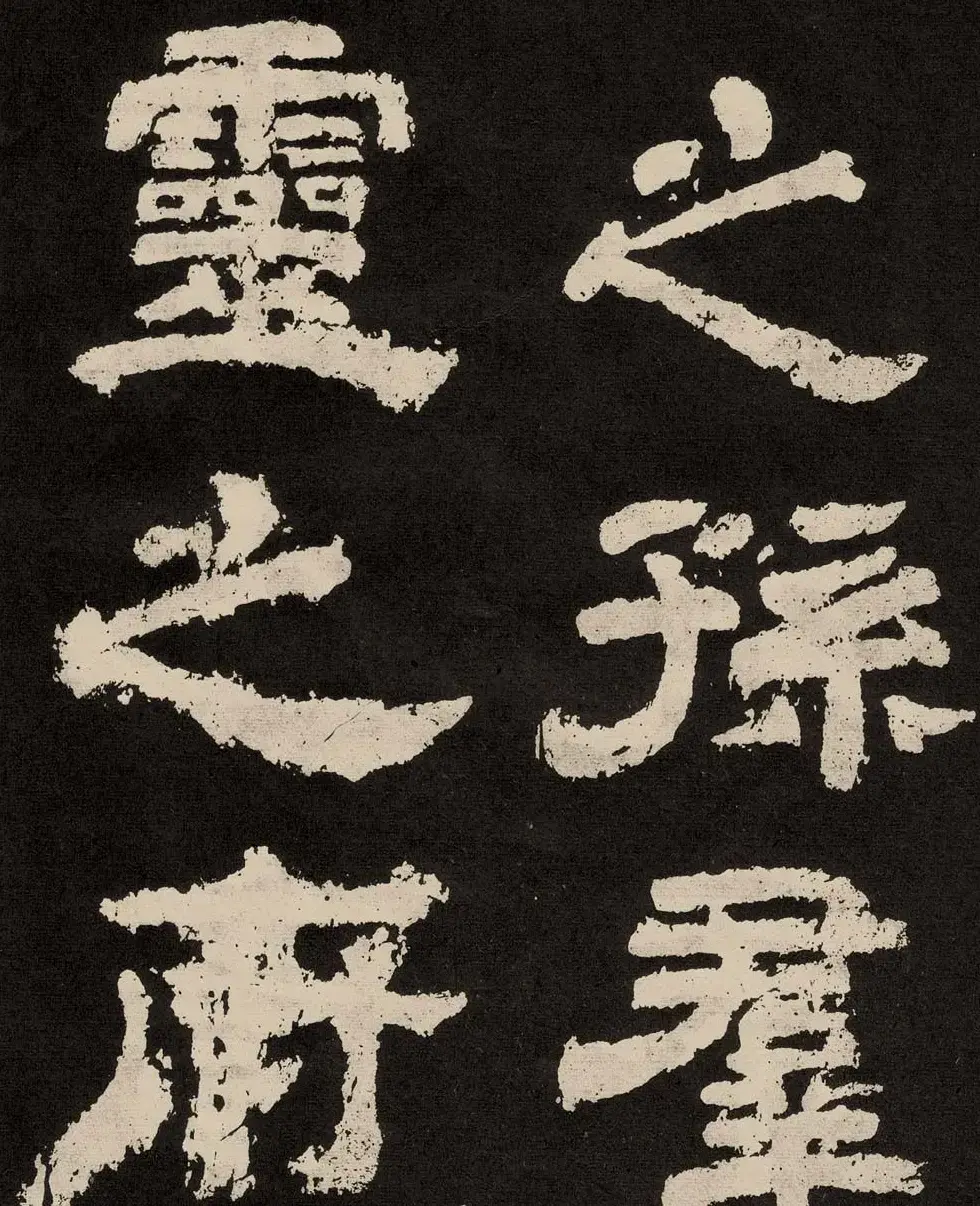 之孫羣
靈之府